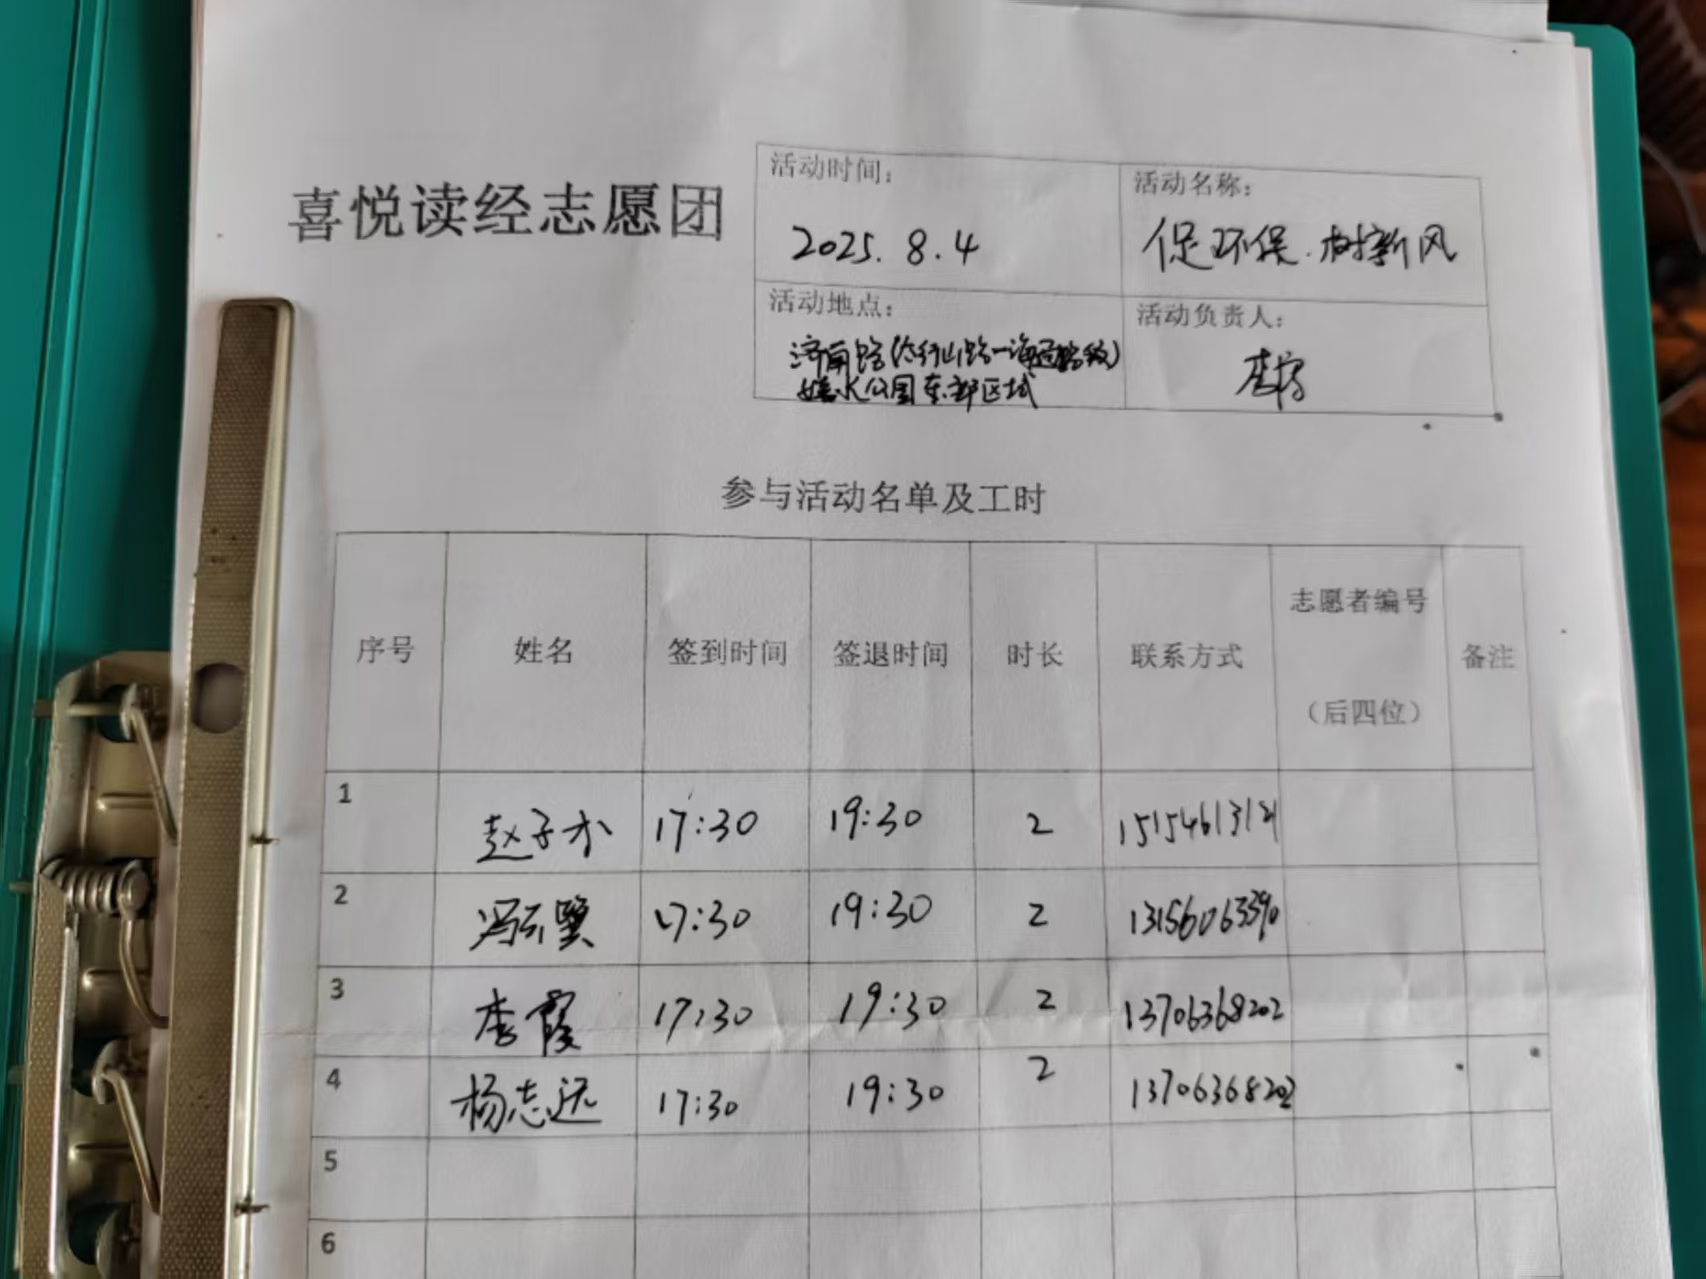 喜悦读经志愿团
活动时间：
2025.8.4
活动名称：
促环保.树新风
活动地点：
济南路(泰行山路一海通路段)
公园东部区域
活动负责人：
李
参与活动名单及工时
序号 姓名 签到时间 签退时间 时长 联系方式 志愿者编号（后四位） 备注
1 赵子水 17:30 19:30 2 15154613121
2 冯云 17:30 19:30 2 13156063390
3 李霞 17:30 19:30 2 13706368202
4 杨志远 17:30 19:30 2 13706368202
5
6